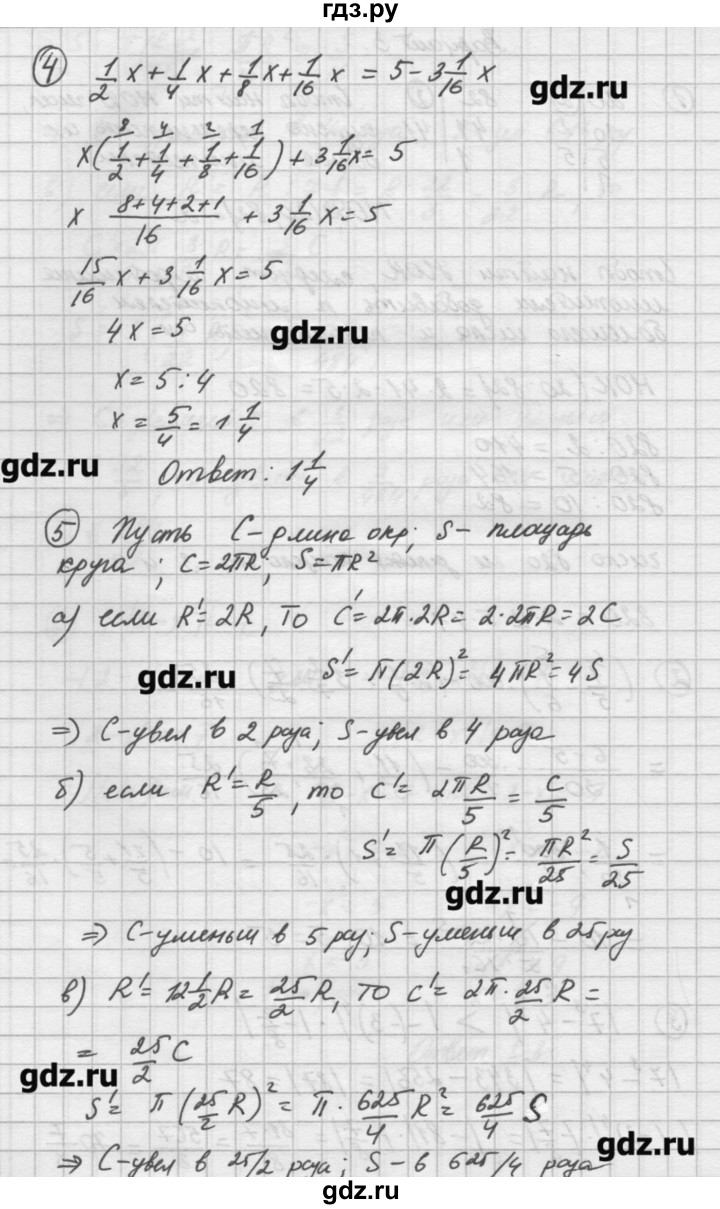 гдз.ру
④ 1/2 x + 1/4 x + 1/8 x + 1/16 x = 5 - 3 1/16 x
gdz.ru
8 4 2 1
x(1/2 + 1/4 + 1/8 + 1/16) + 3 1/16 x = 5
x (8+4+2+1)/16 + 3 1/16 x = 5
15/16 x + 3 1/16 x = 5
4x = 5
gdz.ru
x = 5 : 4
x = 5/4 = 1 1/4
gdz.ru
Ответ: 1 1/4
⑤ Пусть C - длина окр; S - площадь
круга; C = 2πR; S = πR²
а) если R' = 2R, то C' = 2π·2R = 2·2πR = 2C
S' = π(2R)² = 4πR² = 4S
gdz.ru
⇒ C-увел в 2 раза; S-увел в 4 раза
б) если R' = R/5, то C' = 2πR/5 = C/5
S' = π(R/5)² = πR²/25 = S/25
gdz.ru
⇒ C-уменьш в 5 раз; S-уменьш в 25 раз
в) R' = 12 1/2 R = 25/2 R, то C' = 2π · 25/2 R =
= 25/2 C
gdz.ru
S' = π(25/2 R)² = π · 625/4 R² = 625/4 S
gdz.ru
⇒ C-увел в 25/2 раза; S - в 625/4 раза
gdz.ru